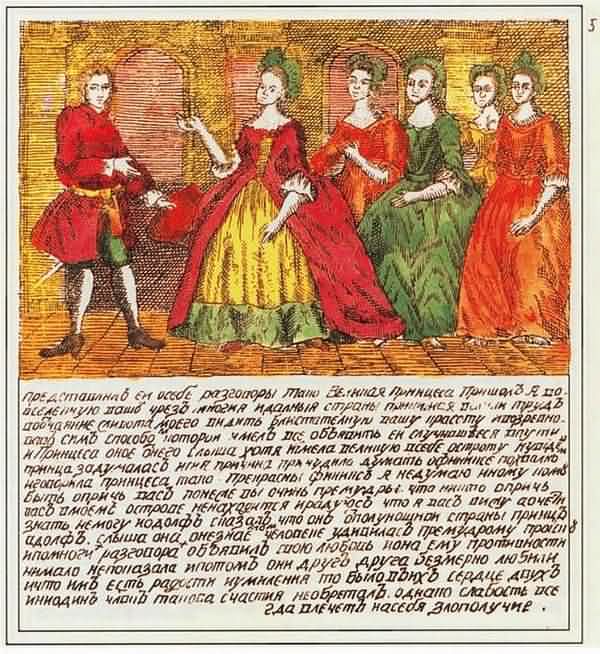 5
представивъ ей особе разговоры тако великая принцеса пришолъ я во
вселенную вашу чрезъ многия идалныя страны принимая трудъ
моего видить блистателную вашу красоту
симъ способо которои имелъ все обьявить ей случашееся
и принцеса оное онего слыша хотя имела великую всебе остроту
принца задумалась иея причина принудило думать
иговорила принцеса тако прекрасны финиксъ я недумаю иному кому
быть опричь васъ понеже вы очинь премудры что никто опричь
васъ вмоемъ острове ненаходится ирадуюсь что я васъ вижу
знать немогу иодолфъ сказалъ что онъ ополунощнои страны принцъ
адолфъ слыша она онезнае человеке удивилась премудрому
ипомноги разговора объявилъ свою любовь иона ему противности
нимало непоказала ипотомъ они другъ друга безмерно любили
ичто имъ есть радости иумиления то было вдвухъ сердце двухъ
инодинъ члвкъ такова счастия необреталъ однако слабость все
гда влечетъ насебя злополучие .